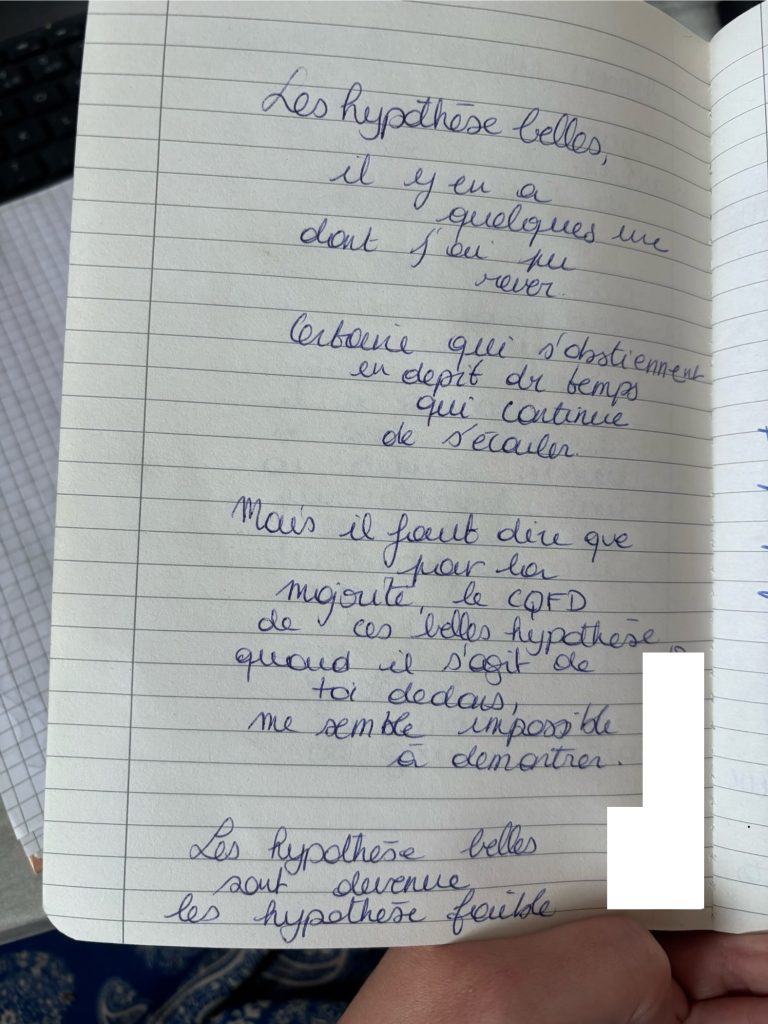 Les hypothèse belles,
il y en a
quelques une
dont j'ai pu
rever.
Certaine qui s'obstiennent
en depit du temps
qui continue
de s'écouler.
Mais il faut dire que
par la
majorité, le CQFD
de ces belles hypothèse,
quand il s'agit de
toi dedans,
me semble impossible
à demontrer.
Les hypothèse belles
sont devenue
les hypothèse faible